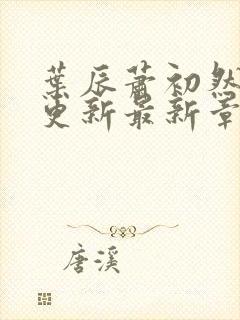 葉辰蕭初然
更新最新章
唐溪